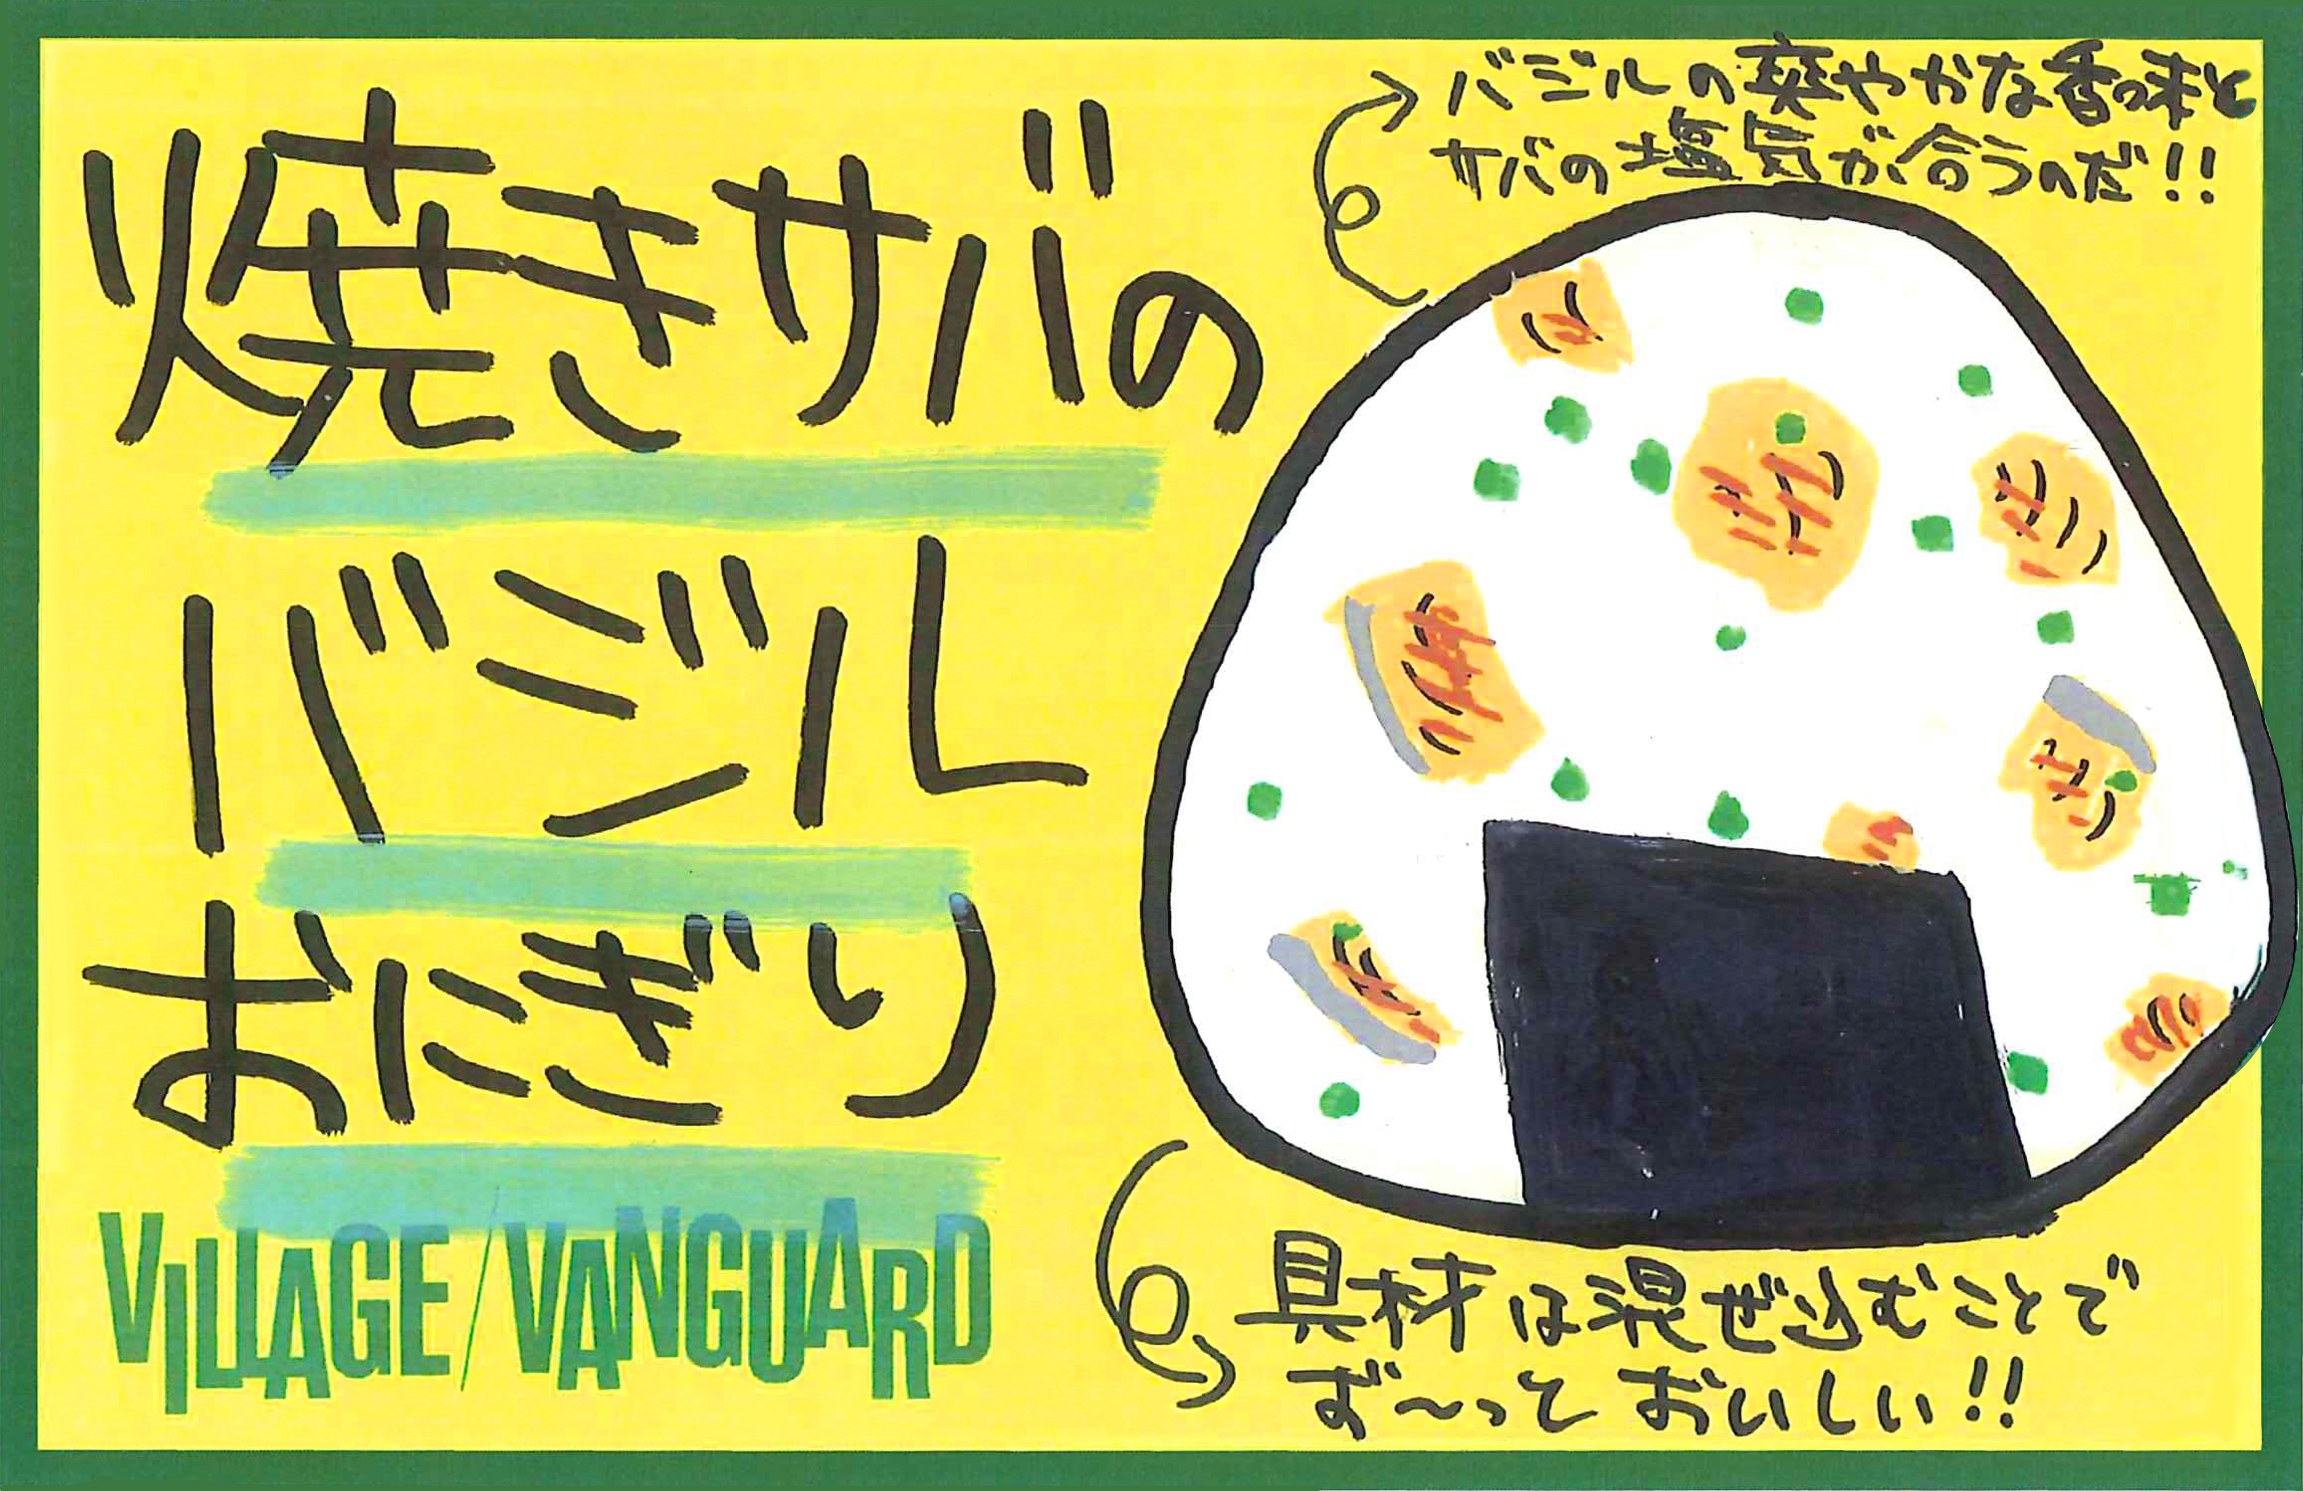 焼きサバの
バジル
おにぎり
VILLAGE/VANGUARD
バジルの爽やかな香味と
サバの塩気が合うのだ!!
具材は混ぜ込むことで
ず〜っとおいしい!!